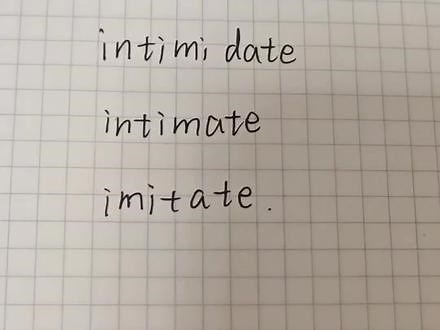 intimidate
intimate
imitate.